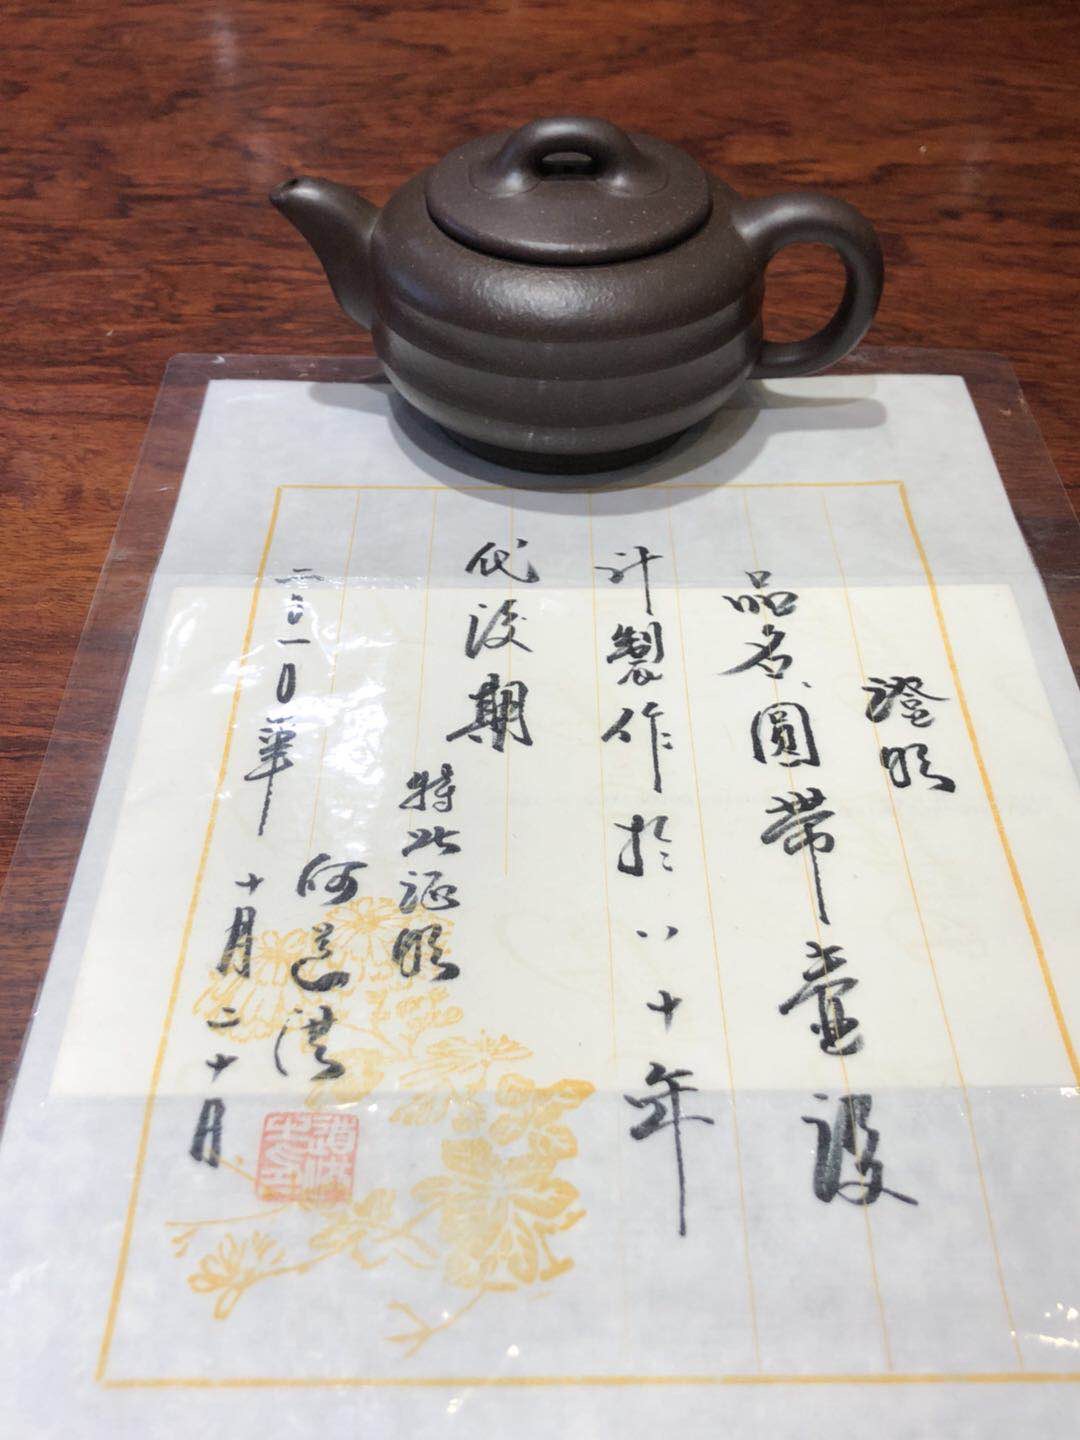 證明
品名、圓帶壺設
計製作於八十年
代後期
特此证明
何道洪
二〇一〇年十月二十日